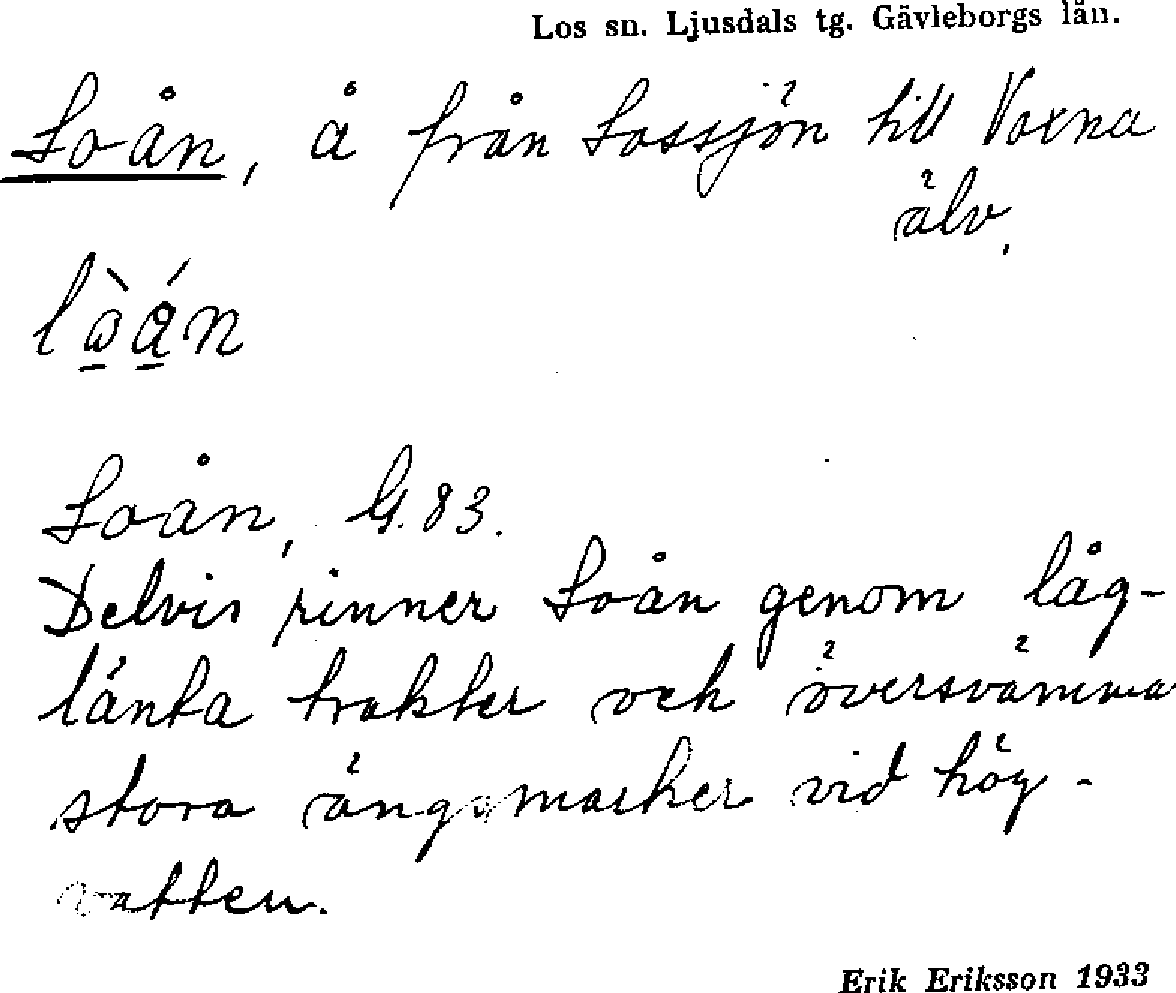 Los sn. Ljusdals tg. Gävleborgs län.
Loån, å från Lossjön till Voxna
älv.
lò̱á̱n
Loån, G. 83.
Delvis rinner Loån genom låg-
länta trakter och översvämma
stora ängsmarker vid hög-
vatten.
Erik Eriksson 1933